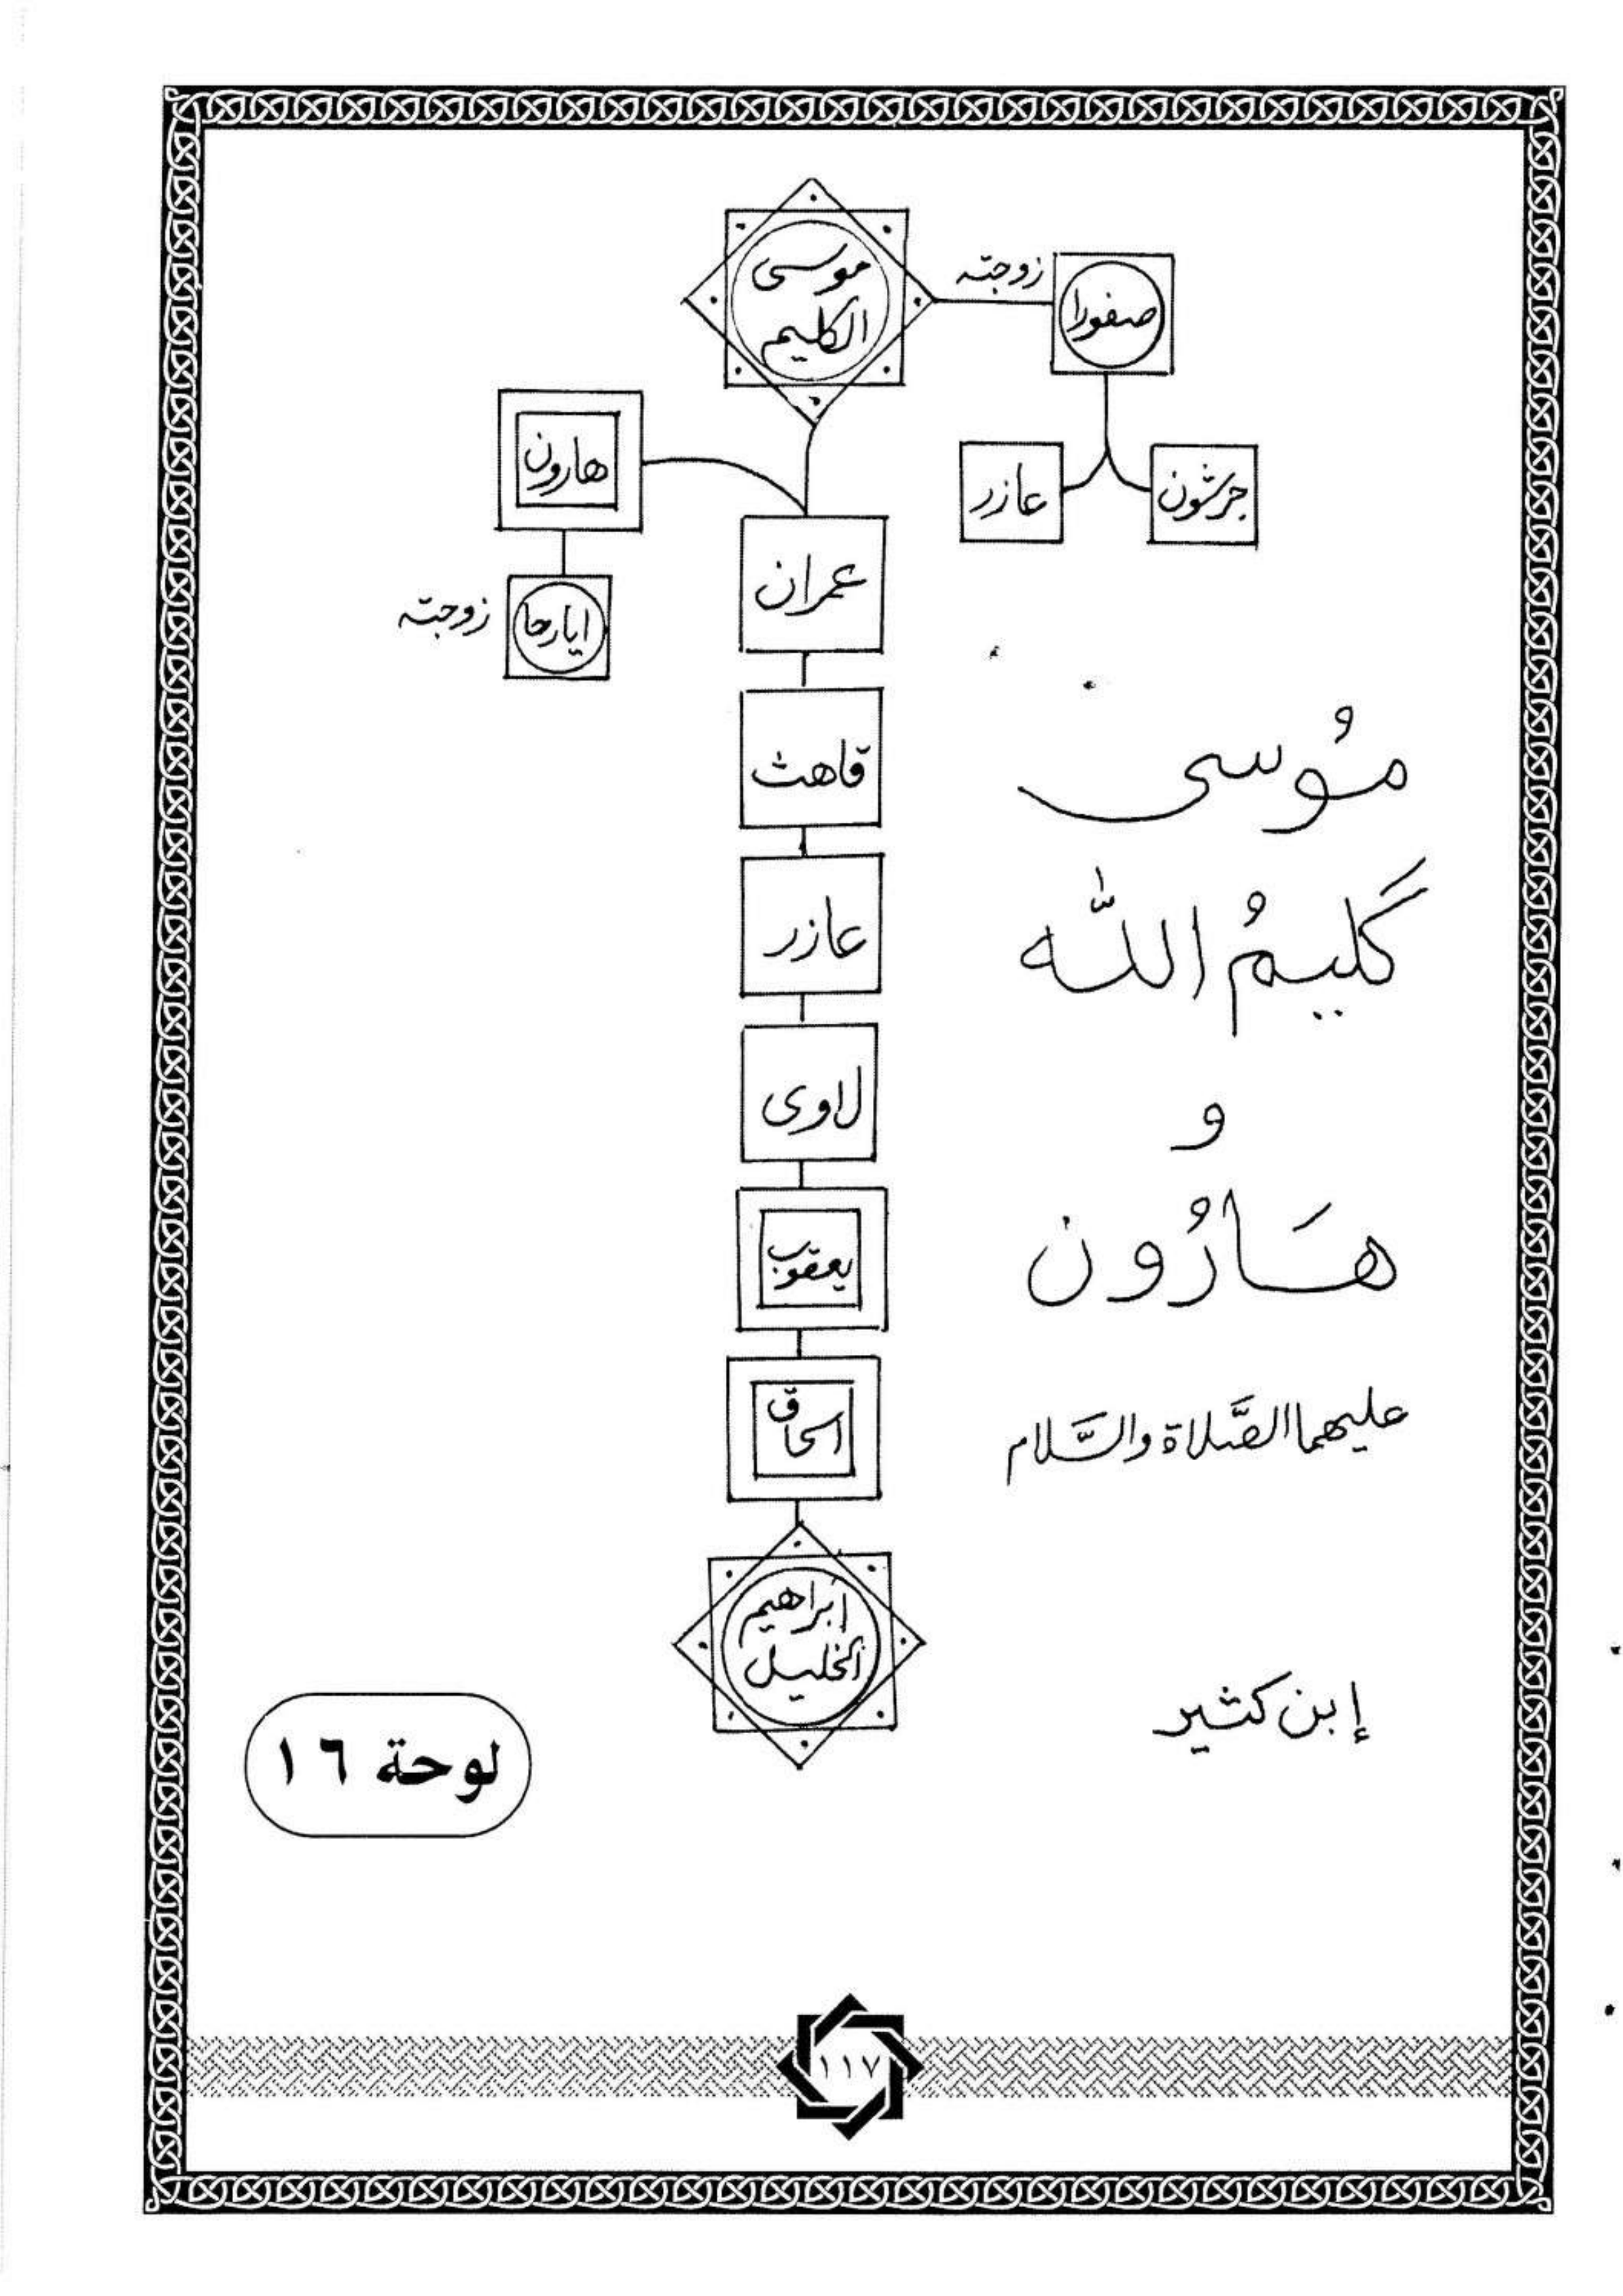 موسى
الكليم
زوجته
صفورا
جرشون
عازر
هارون
زوجته
ايارحا
عمران
قاهث
عازر
لاوى
يعقوب
اسحاق
إبراهيم
الخليل
مُوسى
كَليمُ اللّٰه
و
هَارُون
عليهما الصَّلاة والسَّلام
إبن كثير
لوحة ١٦
١١٧